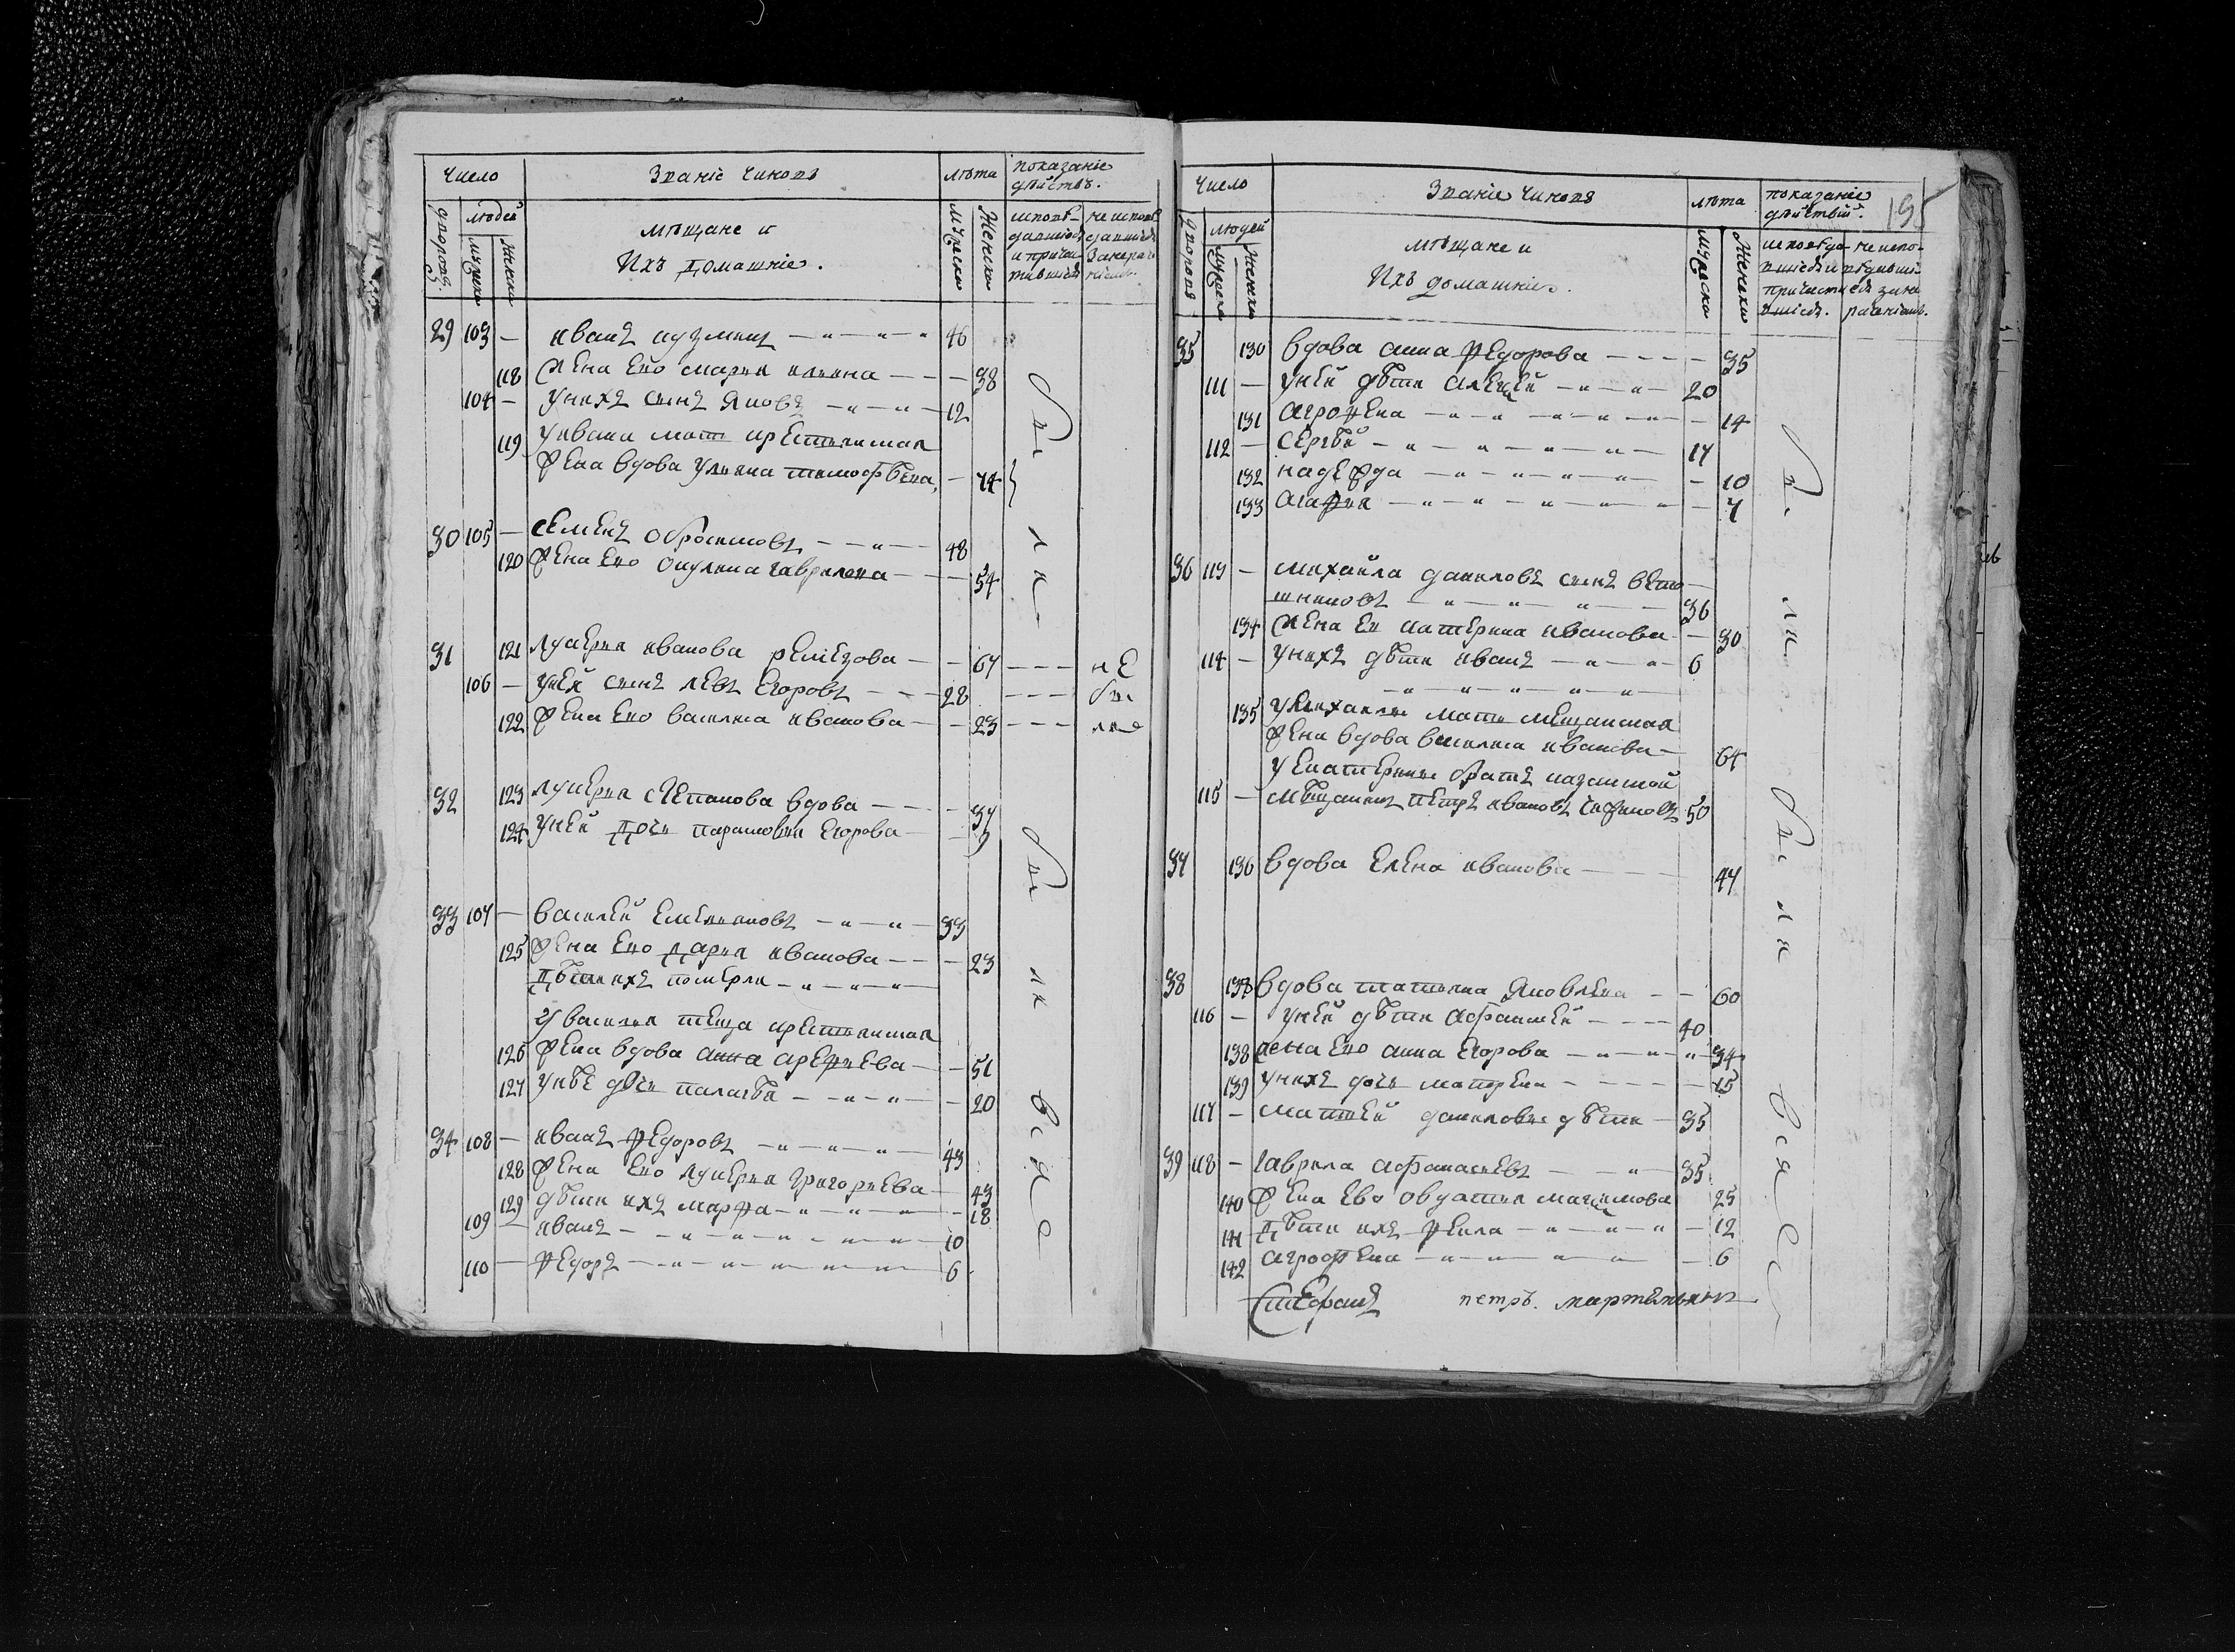 Число Званіе чиновъ лѣта показаніе
дѣйствъ.
дворовъ. людей мѣщане и мужеска женска исповѣ- не исповѣ
мужеска женска Ихъ Домашніе.
29 103 — иванъ кузминъ 46
118 жена ево марья — 38
104 — у нихъ сынъ яковъ 12
119 у ивана мать крестьянская
жена вдова ульяна тимофѣева, — 74
30 105 — семенъ обросимовъ 48
120 жена ево окулина гаврилена — 54
31 121 лукерья иванова ремезова — 67 не
106 — у ней сынъ левъ егоровъ 28 бы
122 жена ево василиса иванова — 23 ли
32 123 лукерья степанова вдова — 37
124 у ней дочь парасковья егорова — 9
33 107 — василей емельяновъ 33
125 жена ево дарья иванова — 23
дѣти ихъ померли
у василья теща крестьянская
126 жена вдова анна арефиева — 51
127 у нѣе дочь палагѣя — 20
34 108 — иванъ федоровъ 43
128 жена ево лукерья григорьева — 43
129 дѣти ихъ марфа — 18
109 — иванъ 10
110 — федоръ 6
были
были
все
Число Званіе чиновъ лѣта показаніе
дѣйствій. 195
дворовъ людей мѣщане и мужеска женска
мужеска женска Ихъ домашніе.
35 130 вдова анна федорова — 35
111 — у ней дѣти алексей 20
131 агрофена — 14
112 — сергѣй 17
132 надежда — 10
133 агафия — 7
36 113 — михаила даниловъ сынъ ветош
никовъ 36
134 жена ев катерина иванова — 30
114 — у нихъ дѣти иванъ 6
135 у михаилы мать мещанская
жена вдова василиса иванова — 64
у екатерины братъ казанской
115 — мѣщанинъ петръ ивановъ 50
37 136 вдова елена иванова 47
38 137 вдова татьяна яковлена — 60
116 — у ней дѣти афанасей 40
138 жена ево анна егорова 34
139 у нихъ дочь матрена — 15
117 — матвей даниловы дѣти — 35
39 118 — гаврила афанасиевъ 35
140 жена ево овдотья максимова 25
141 дѣти ихъ фекла — 12
142 агрофена — 6
были
были
все
стефанъ петръ. мартыновъ